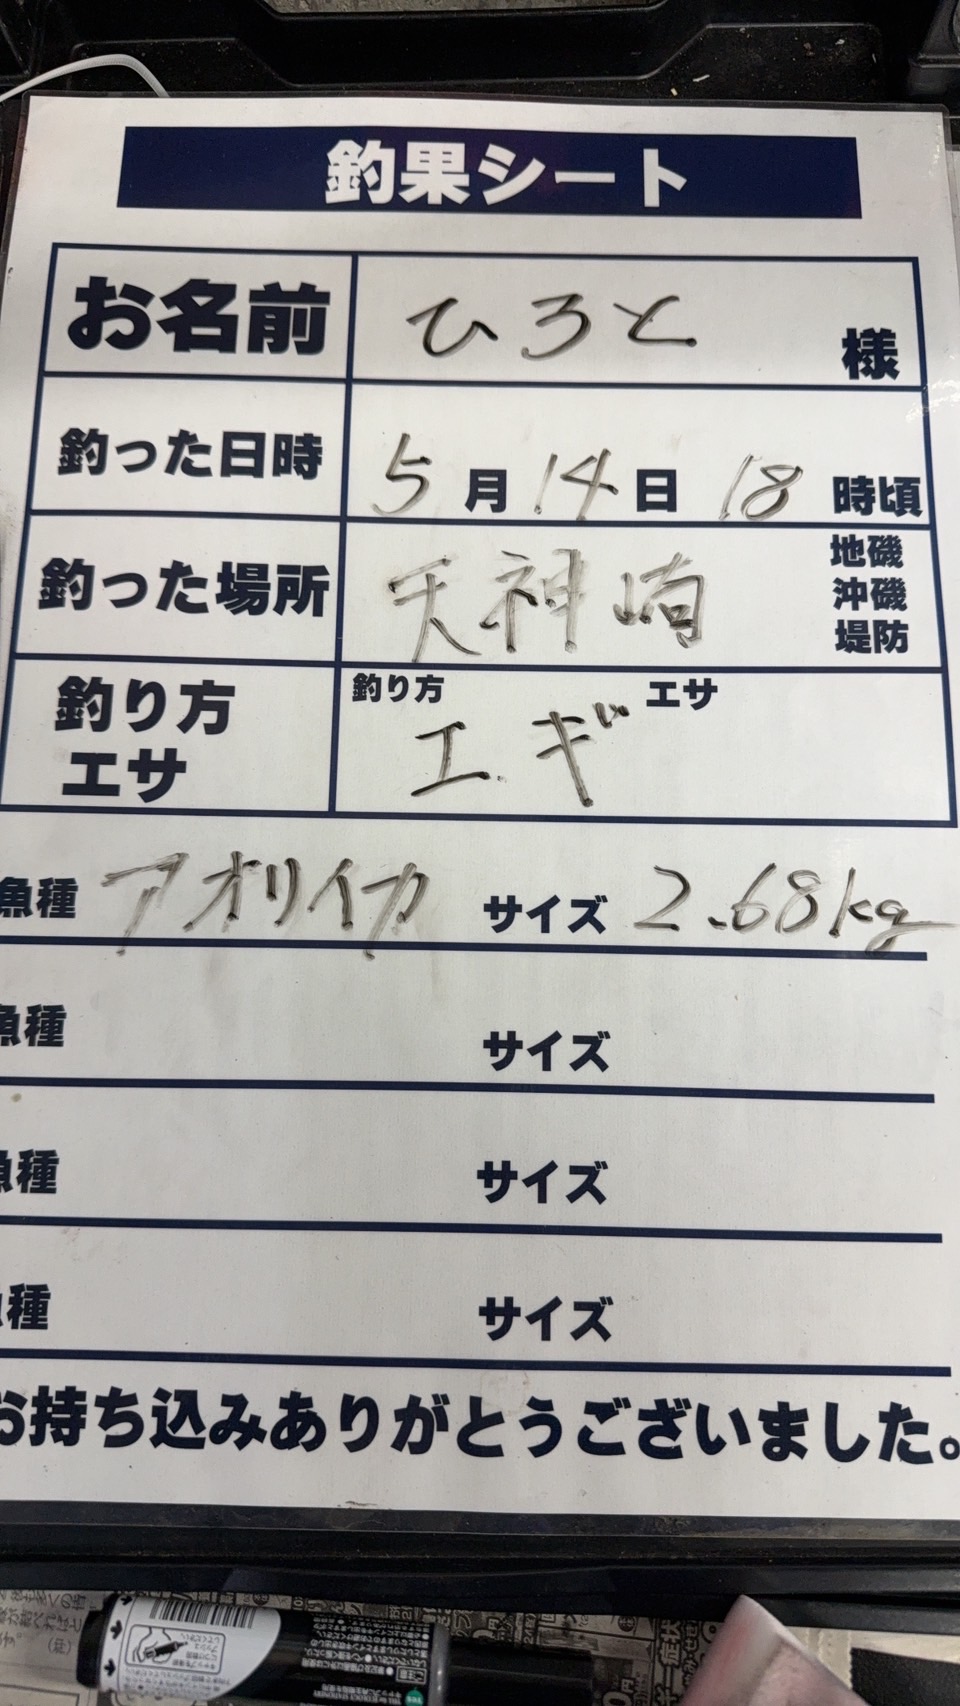 釣果シート
お名前 ひろと 様
釣った日時 5月14日 18時頃
釣った場所 天神崎 地磯
沖磯
堤防
釣り方 エサ
釣り方
エサ
エギ
魚種 アオリイカ サイズ 2.68kg
魚種 サイズ
魚種 サイズ
種 サイズ
お持ち込みありがとうございました。